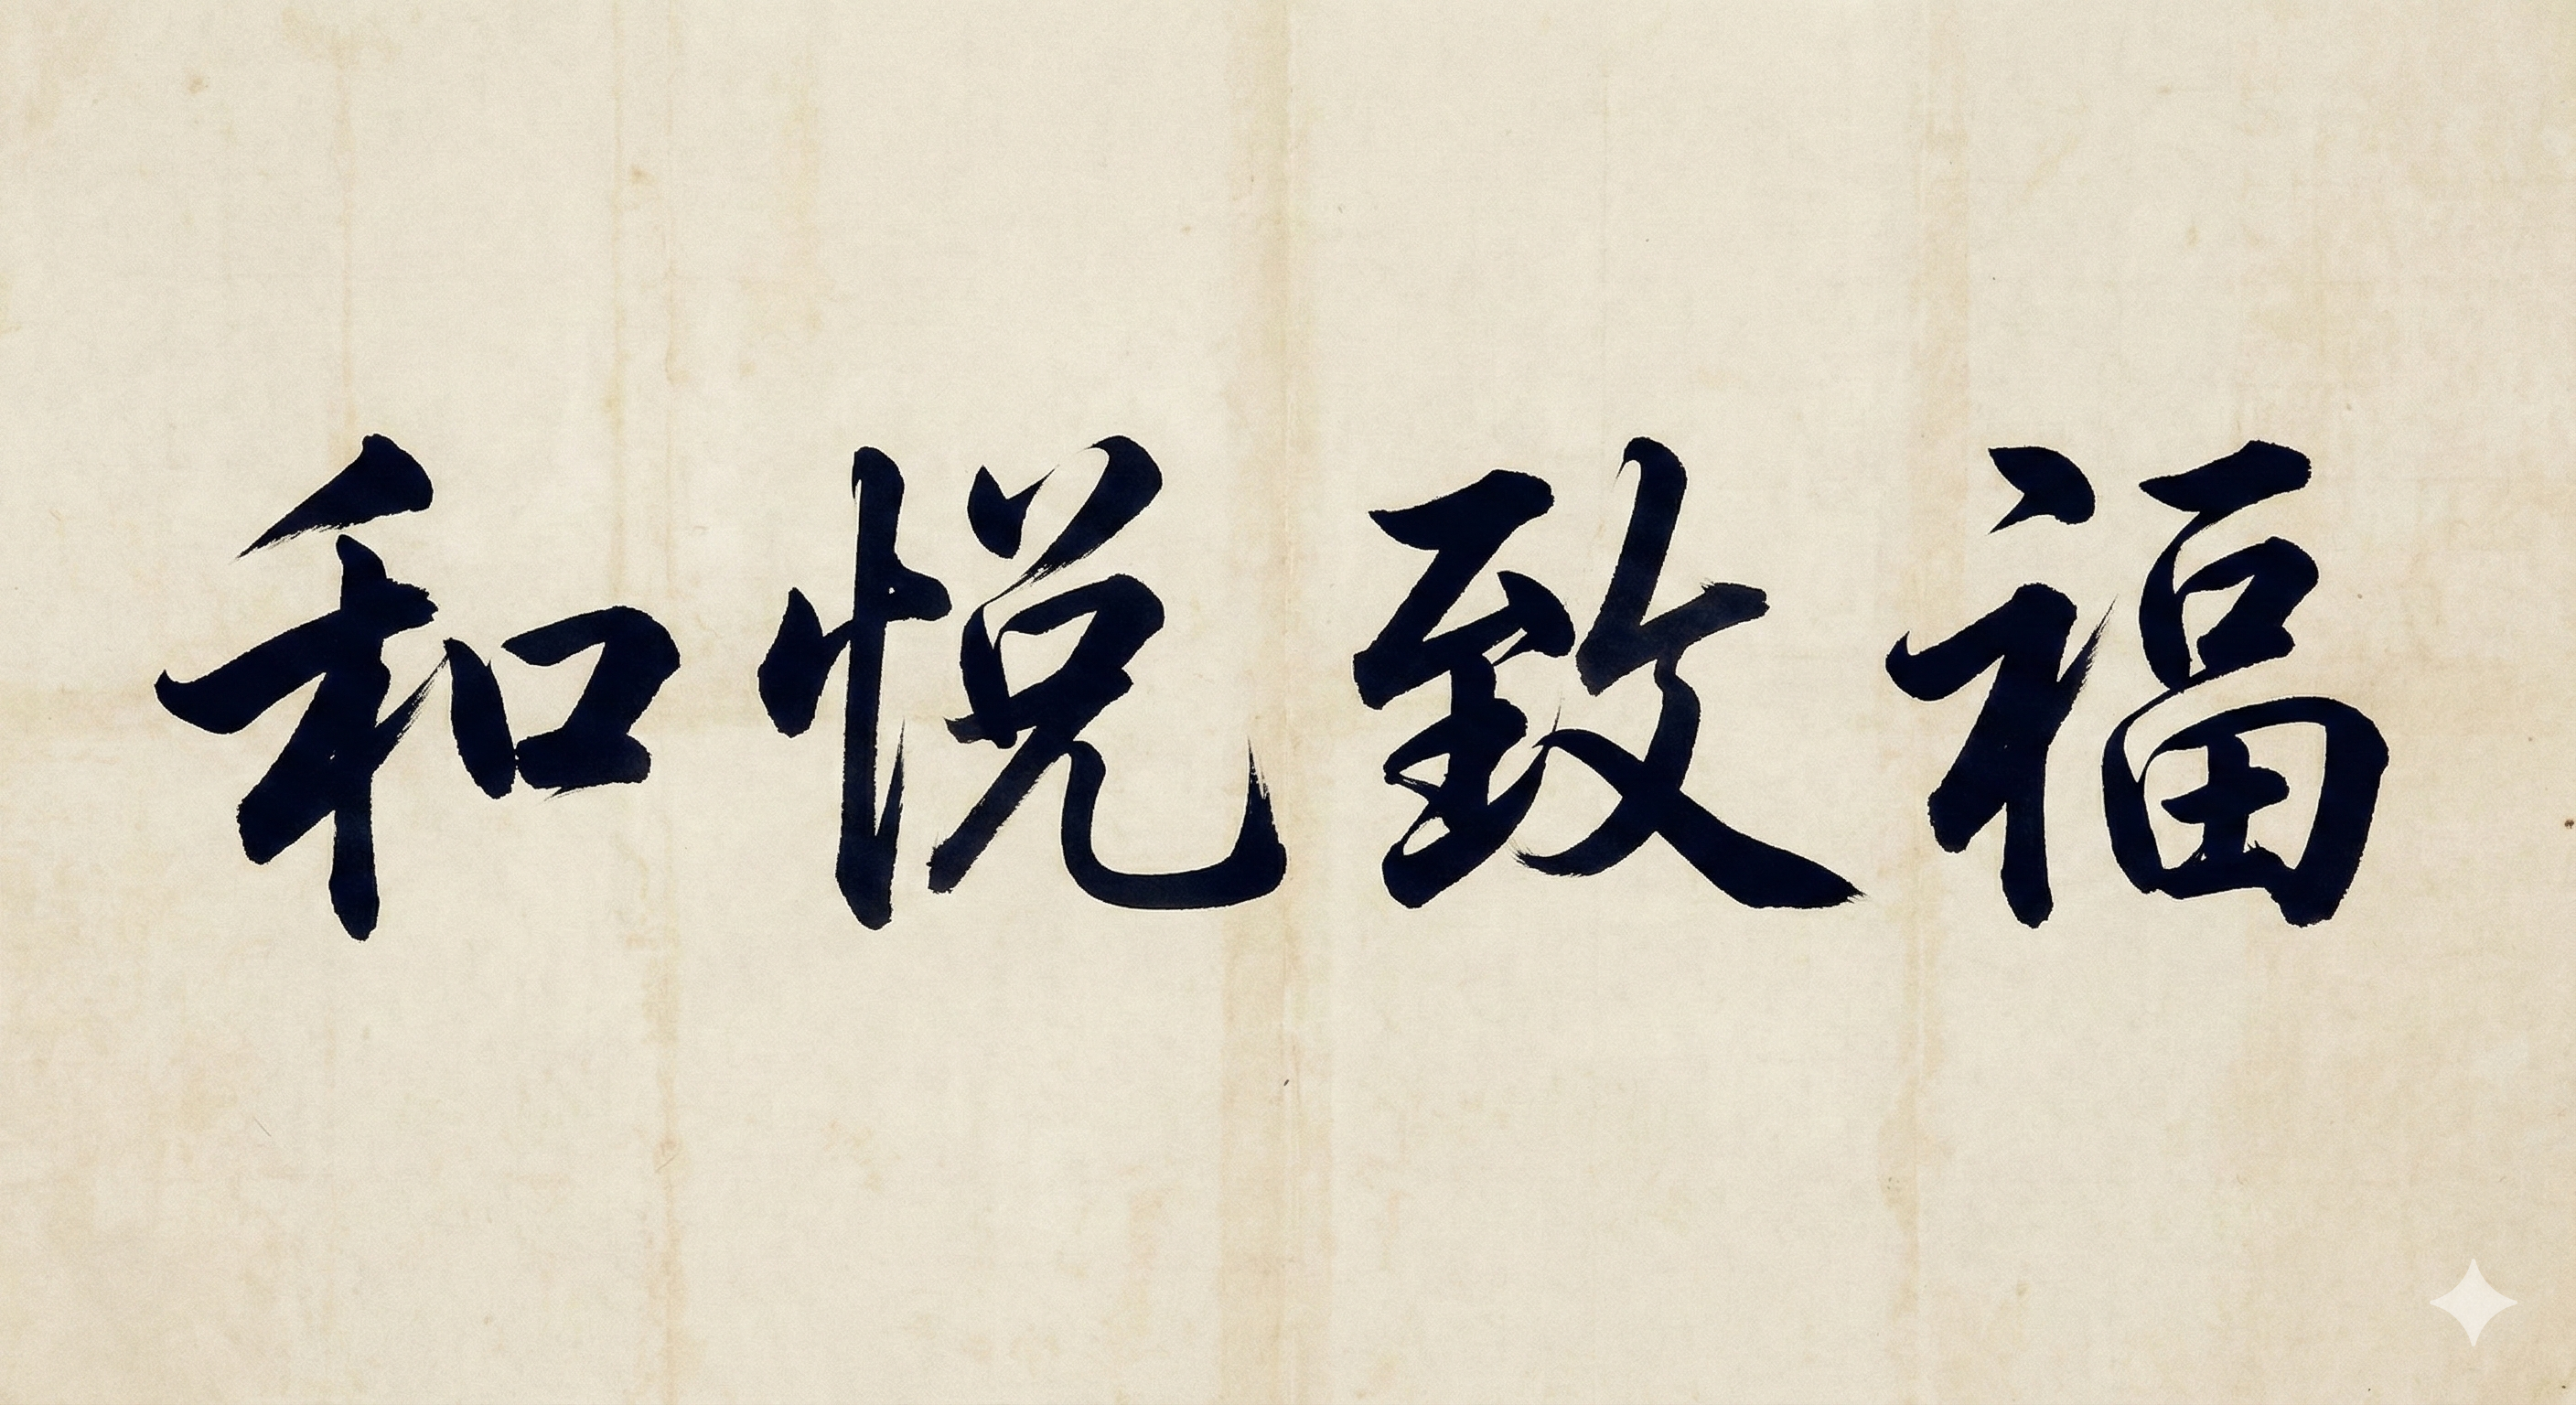 和悦致福